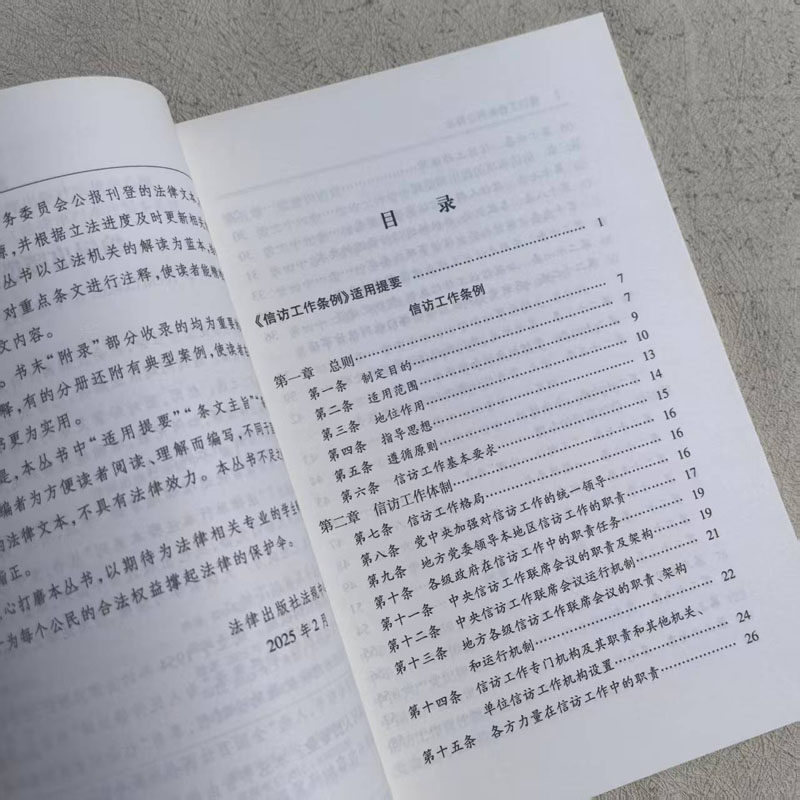 务委员会公报刊登的法律文本
源,并根据立法进度及时更新相关
丛书以立法机关的解读为蓝本,
对重点条文进行注释,使读者能
文内容。
。书末“附录”部分收录的均为重要
释,有的分册还附有典型案例,使读者
书更为实用。
是,本丛书中“适用提要”“条文主旨”
编者为方便读者阅读、理解而编写,不同于
法律文本,不具有法律效力。本丛书不足
指正。
心打磨本丛书,以期待为法律相关专业的学生
为每个公民的合法权益撑起法律的保护伞。
法律出版社法规
2025年2月
目 录
《信访工作条例》适用提要 …… 1
信访工作条例
第一章 总则 …… 7
第一条 制定目的 …… 7
第二条 适用范围 …… 9
第三条 地位作用 …… 10
第四条 指导思想 …… 13
第五条 遵循原则 …… 14
第六条 信访工作基本要求 …… 15
第二章 信访工作体制 …… 16
第七条 信访工作格局 …… 16
第八条 党中央加强对信访工作的统一领导 …… 16
第九条 地方党委领导本地区信访工作的职责 …… 17
第十条 各级政府在信访工作中的职责任务 …… 19
第十一条 中央信访工作联席会议的职责及架构 …… 19
第十二条 中央信访工作联席会议运行机制 …… 21
第十三条 地方各级信访工作联席会议的职责、架构
和运行机制 …… 22
第十四条 信访工作专门机构及其职责和其他机关、
单位信访工作机构设置 …… 24
第十五条 各方力量在信访工作中的职责 …… 26